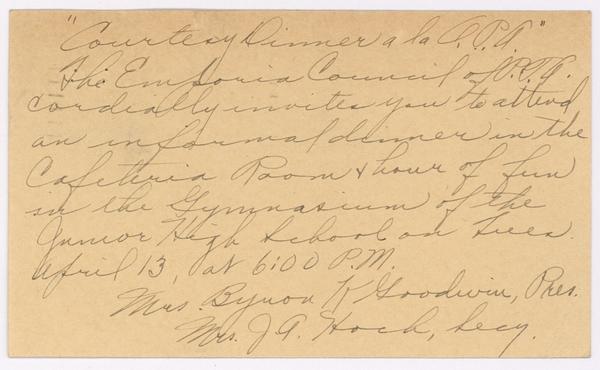 "Courtesy Dinner a la O.P.A."
The Emporia Council of P.T.A.
cordially invites you to attend
an informal dinner in the
Cafeteria Room & hour of fun
in the Gymnasium of the
Junior High School on Tues.
April 13, at 6:00 P.M.
Mrs. Byron K Goodwin, Pres.
Mrs. J A. Hoch, Secy.